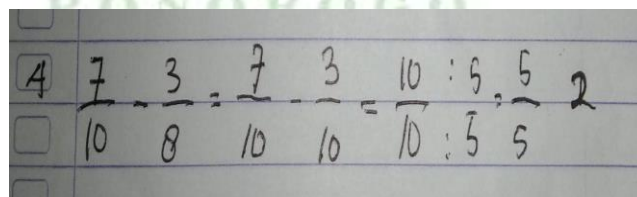 4 7/10 - 3/8 = 7/10 - 3/10 = 10/10 : 5/5 = 5/5 2